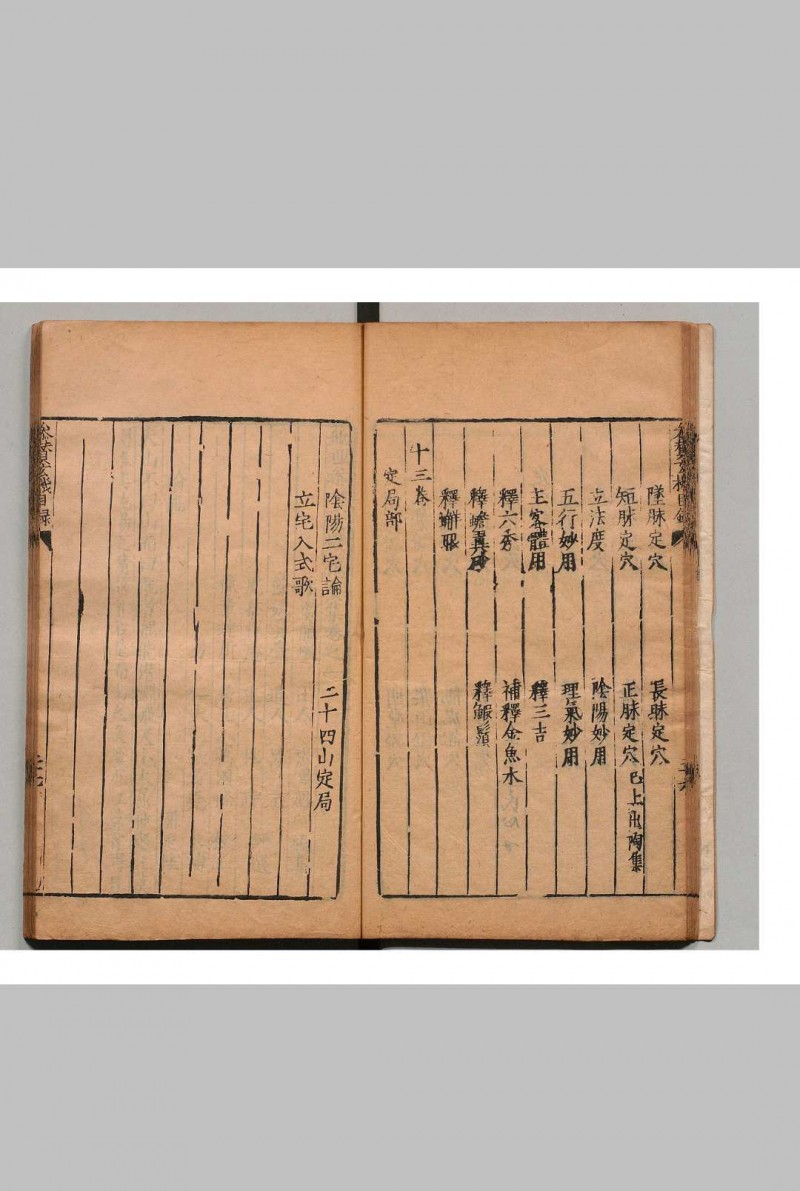 墜脉定穴　長脉定穴
短脉定穴　正脉定穴已上出陶集
立法度　陰陽妙用
五行妙用　理氣妙用
主客體用　釋三吉
釋六秀　補釋金魚水
釋蟾翼砂　釋鰕鬚
釋蠏眼
十三卷
定局部
陰陽二宅論　二十四山定局
立宅入式歌
目錄
目錄